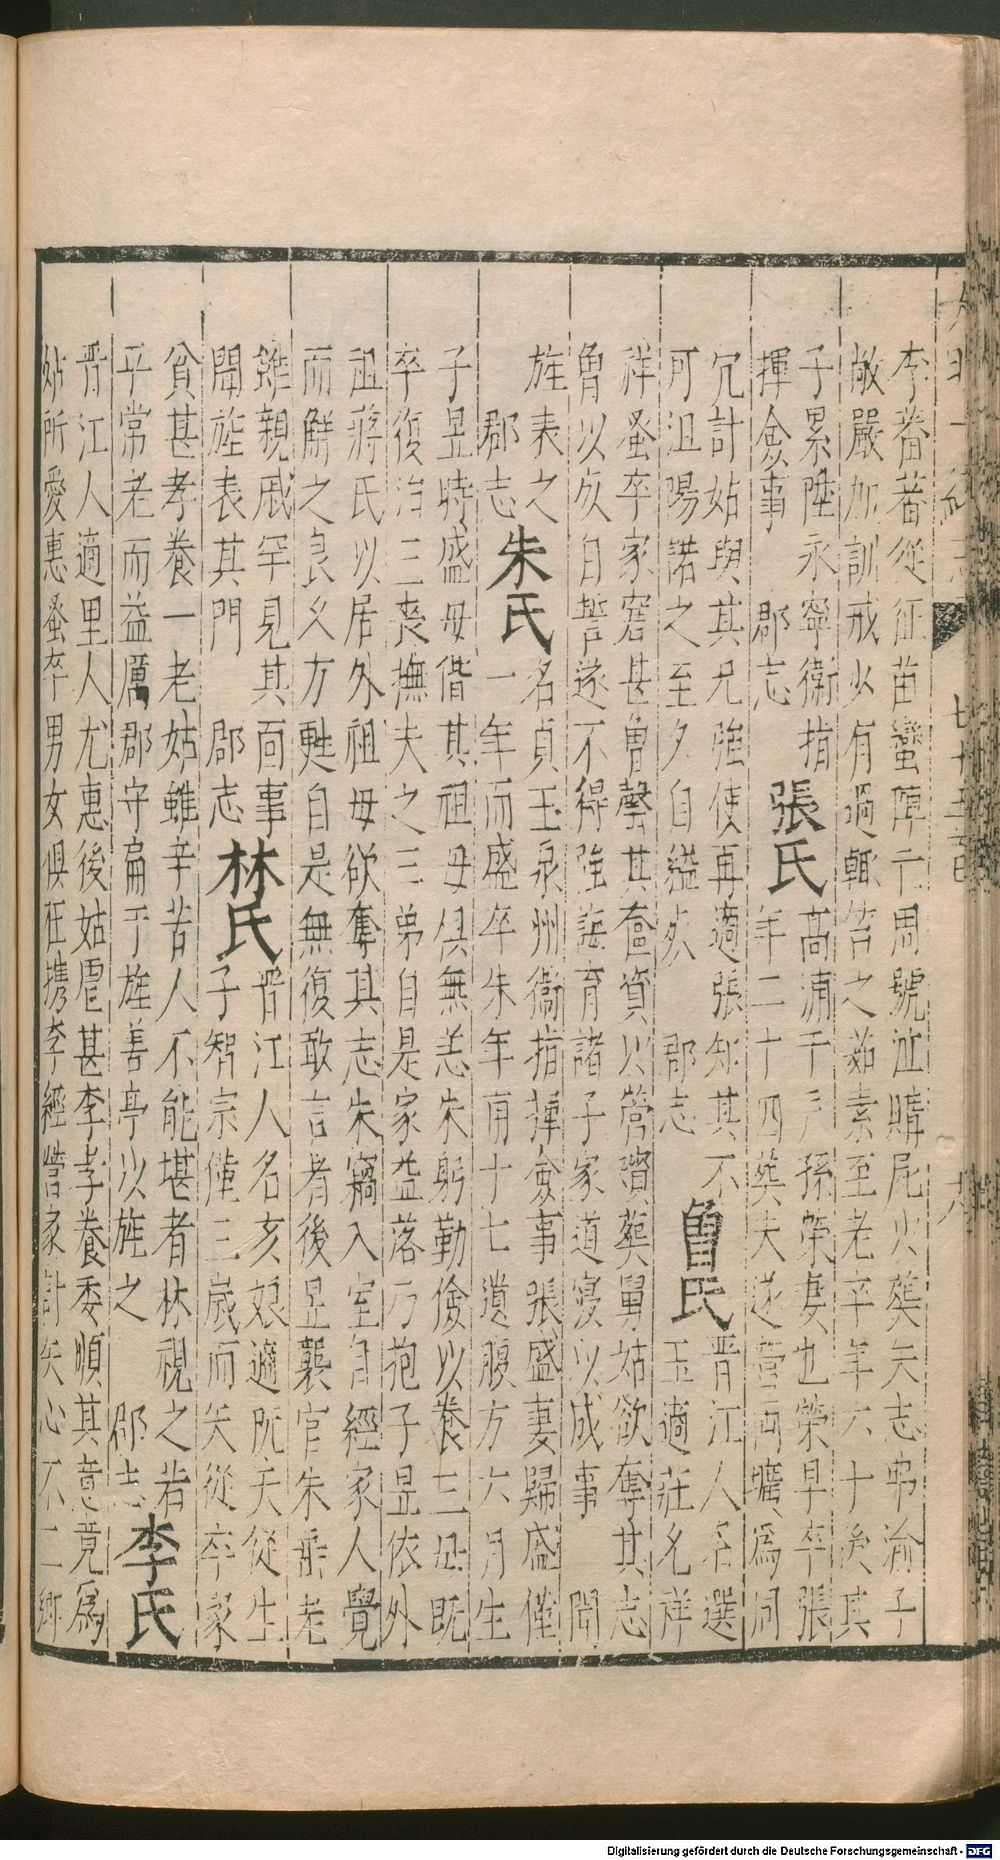 李蕃蕃從征苗蠻陣亡周號泣購屍火葬矢志弗渝子
敞嚴加訓戒少有過輒告之茹素至老卒年六十後其
子累陞永寧衛指 張氏 高浦千戶孫榮妻也榮早卒張
揮僉事 郡志 年二十四葬夫遂營 壙為同
穴計姑與其兄強使再適張知其不 魯氏 晋江人名選
可沮陽諾之至夕自縊死 郡志 玉適莊允祥
祥蚤卒家窘甚魯罄其奩資以營殯葬舅姑欲奪其志
魯以死自誓遂不得強誨育諸子家道寖以成事聞
旌表之 朱氏 名貞玉泉州衞指揮僉事張盛妻歸盛僅
郡志 一年而盛卒朱年甫十七遺腹方六月生
子昱時盛母偕其祖母俱無恙朱躬勤儉以養三母既
卒復治三喪撫夫之三弟自是家益落乃抱子昱依外
祖蔣氏以居外祖母欲奪其志朱竊入室自經家人覺
而解之良久方甦自是無復敢言者後昱襲官朱垂老
雖親戚罕見其面事 林氏 晋江人名亥娘適阮夫從生
聞旌表其門 郡志 子智宗僅三歲而夫從卒家
貧甚孝養一老姑雖辛苦人不能堪者林視之若
平常老而益厲郡守扁于旌善亭以旌之 郡志 李氏
晋江人適里人尤惠後姑虐甚李孝養委順其意竟為
姑所愛惠蚤卒男女俱在携李經營家計矢心不二鄉
七十五
六
Digitalisierung gefördert durch die Deutsche Forschungsgemeinschaft - DFG